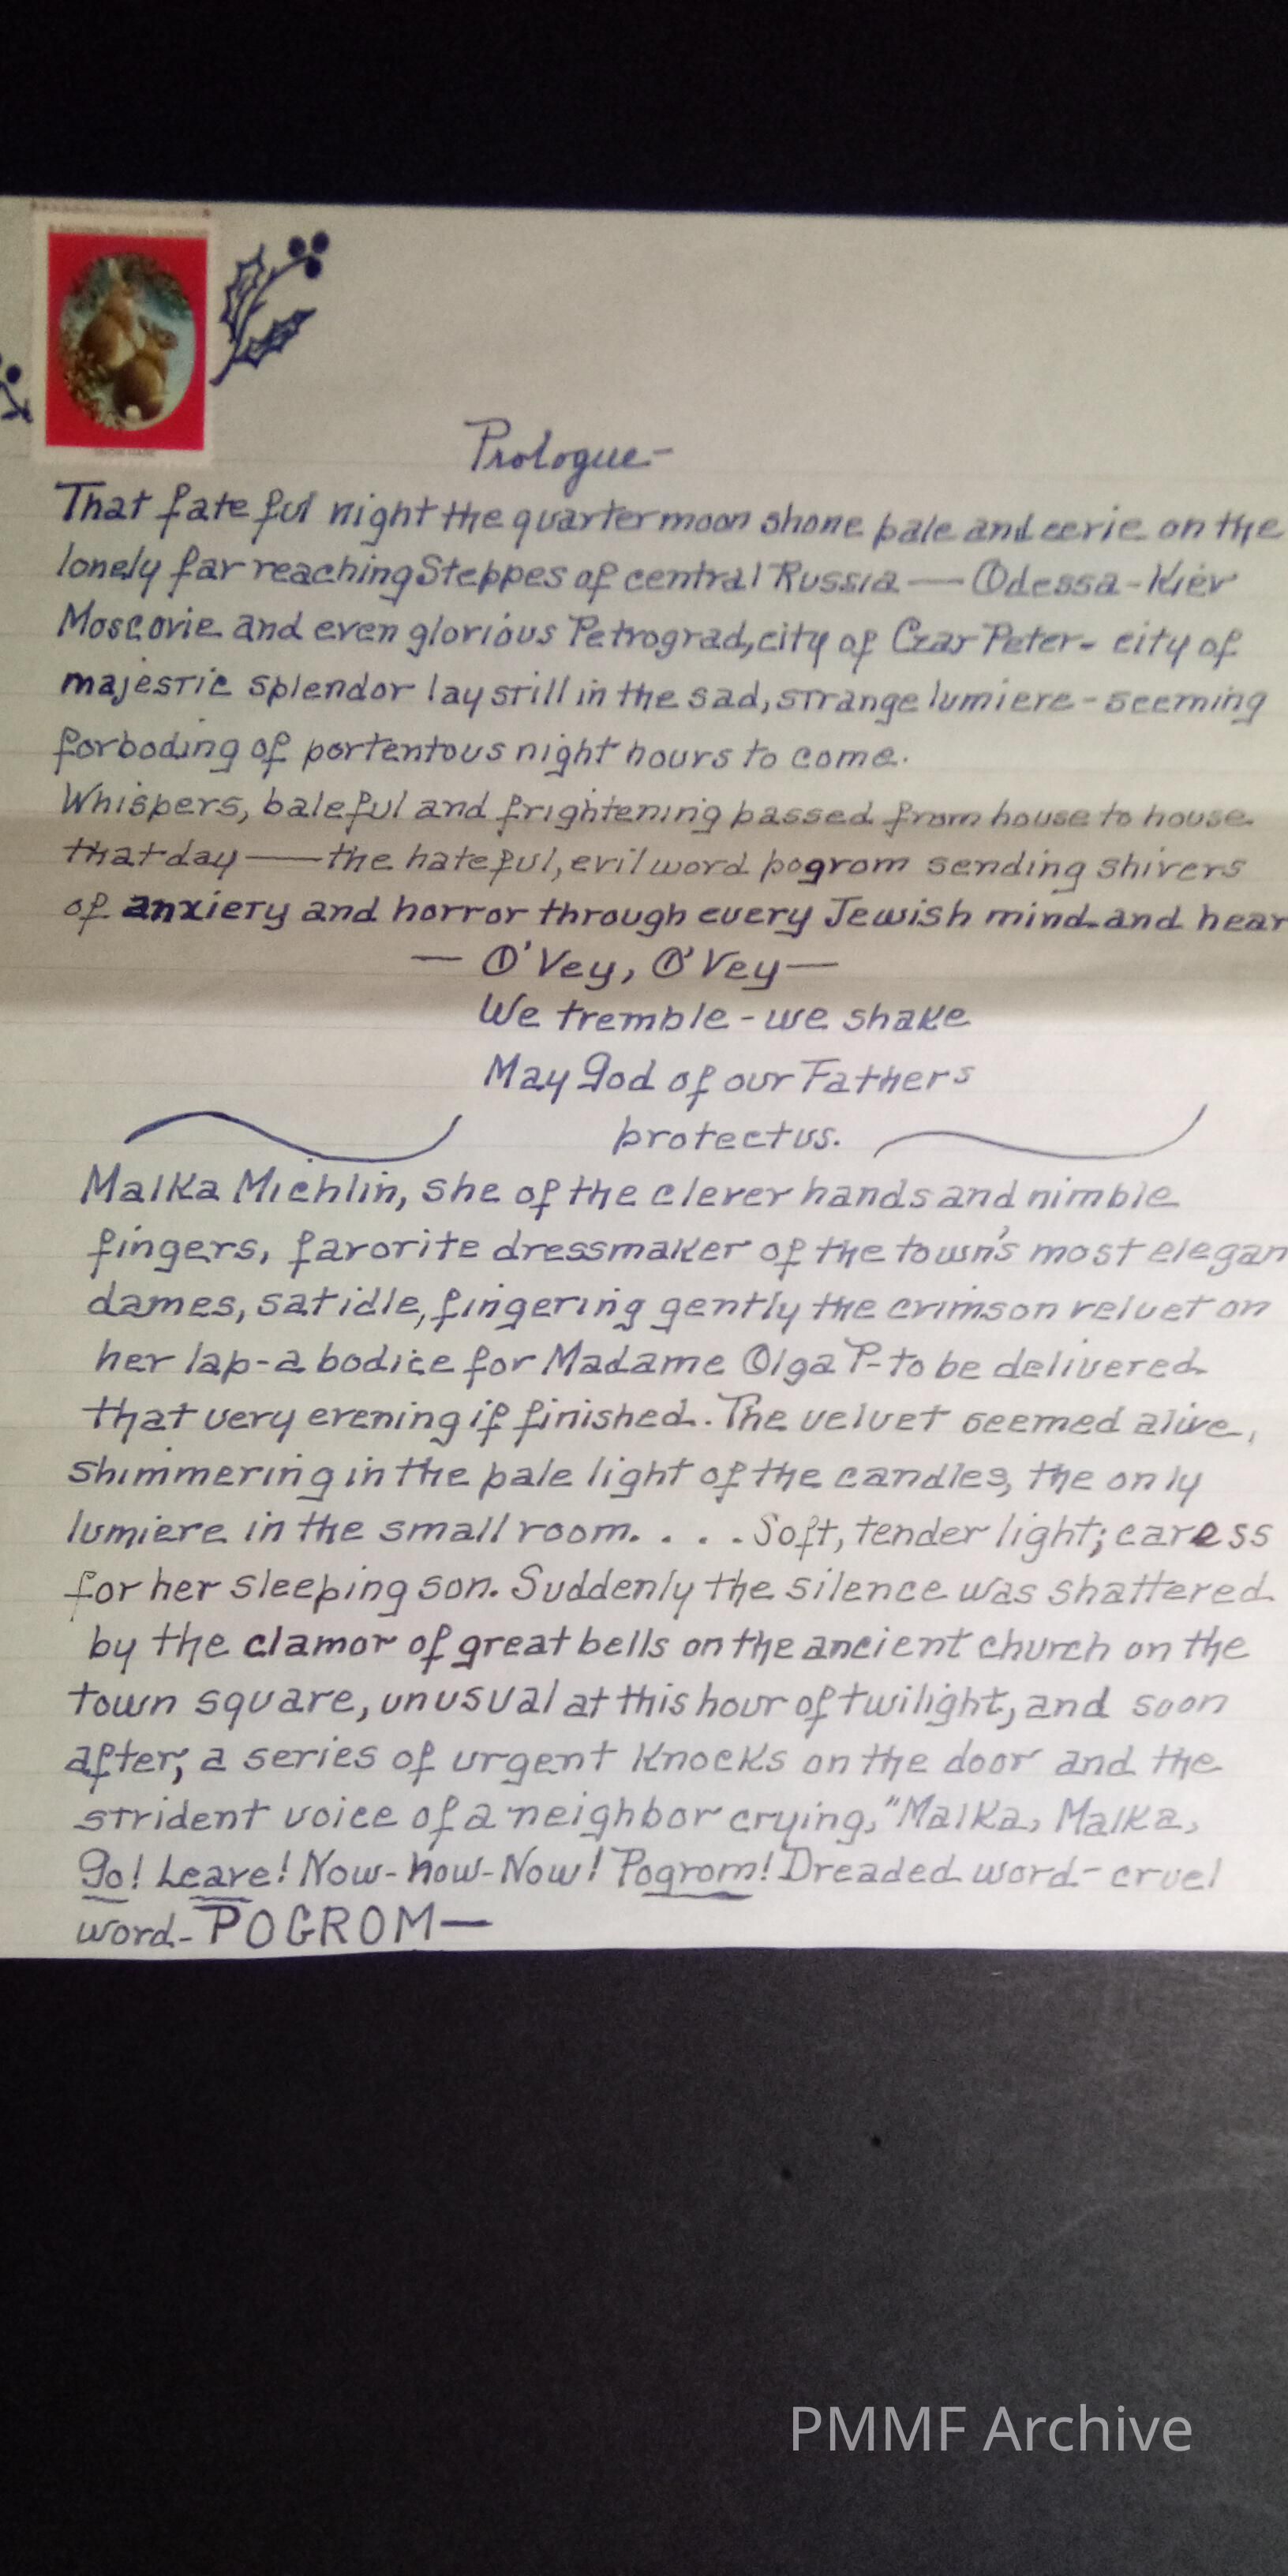 Prologue-
That fateful night the quarter moon shone pale and eerie on the
lonely far reaching Steppes of central Russia — Odessa - Kiev
Moscovie and even glorious Petrograd, city of Czar Peter - city of
majestic splendor lay still in the sad, strange lumiere - seeming
forboding of portentous night hours to come.
Whispers, baleful and frightening passed from house to house
that day — the hateful, evil word pogrom sending shivers
of anxiety and horror through every Jewish mind and hear
— O'Vey, O'Vey —
We tremble - we shake
May God of our Fathers
protect us.
Malka Michlin, she of the clever hands and nimble
fingers, favorite dressmaker of the town's most elegan
dames, sat idle, fingering gently the crimson velvet on
her lap - a bodice for Madame Olga P- to be delivered
that very evening if finished. The velvet seemed alive,
shimmering in the pale light of the candles, the only
lumiere in the small room. . . . Soft, tender light; caress
for her sleeping son. Suddenly the silence was shattered
by the clamor of great bells on the ancient church on the
town square, unusual at this hour of twilight, and soon
after, a series of urgent knocks on the door and the
strident voice of a neighbor crying, "Malka, Malka,
Go! Leave! Now - now - Now! Pogrom! Dreaded word - cruel
word - POGROM —
PMMF Archive